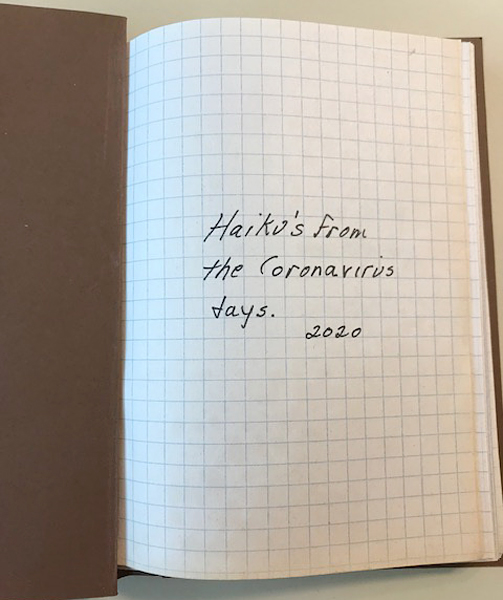 Haiku's from
the Coronavirus
days.
2020